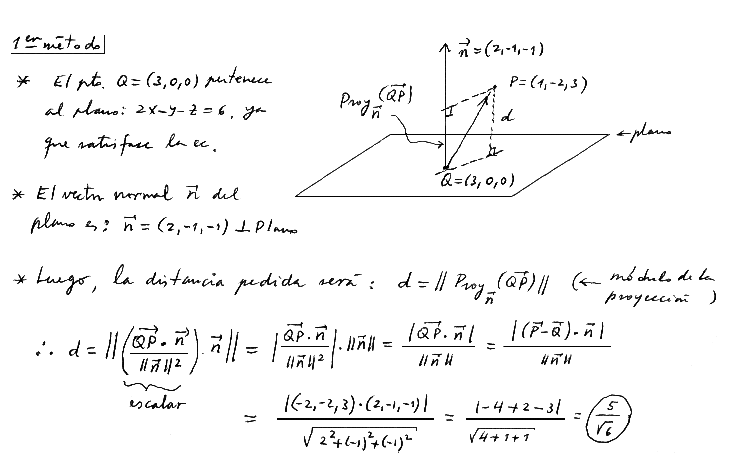 1er método
* El pto. Q = (3,0,0) pertenece
al plano: 2x-y-z=6, ya
que satisface la ec.
* El vector normal n⃗ del
plano es: n⃗ = (2,-1,-1) ⊥ Plano
n⃗ = (2,-1,-1)
P = (1,-2,3)
Proy_n⃗ (QP⃗)
d
← plano
Q = (3,0,0)
* Luego, la distancia pedida será: d = || Proy_n⃗ (QP⃗) || (← módulo de la proyección)
∴ d = || ( QP⃗ · n⃗ / ||n⃗||² ) · n⃗ || = | QP⃗ · n⃗ / ||n⃗||² | · ||n⃗|| = |QP⃗ · n⃗| / ||n⃗|| = |(P⃗ - Q⃗) · n⃗| / ||n⃗||
escalar
= |(-2,-2,3) · (2,-1,-1)| / √(2²+(-1)²+(-1)²) = |-4+2-3| / √(4+1+1) = 5/√6